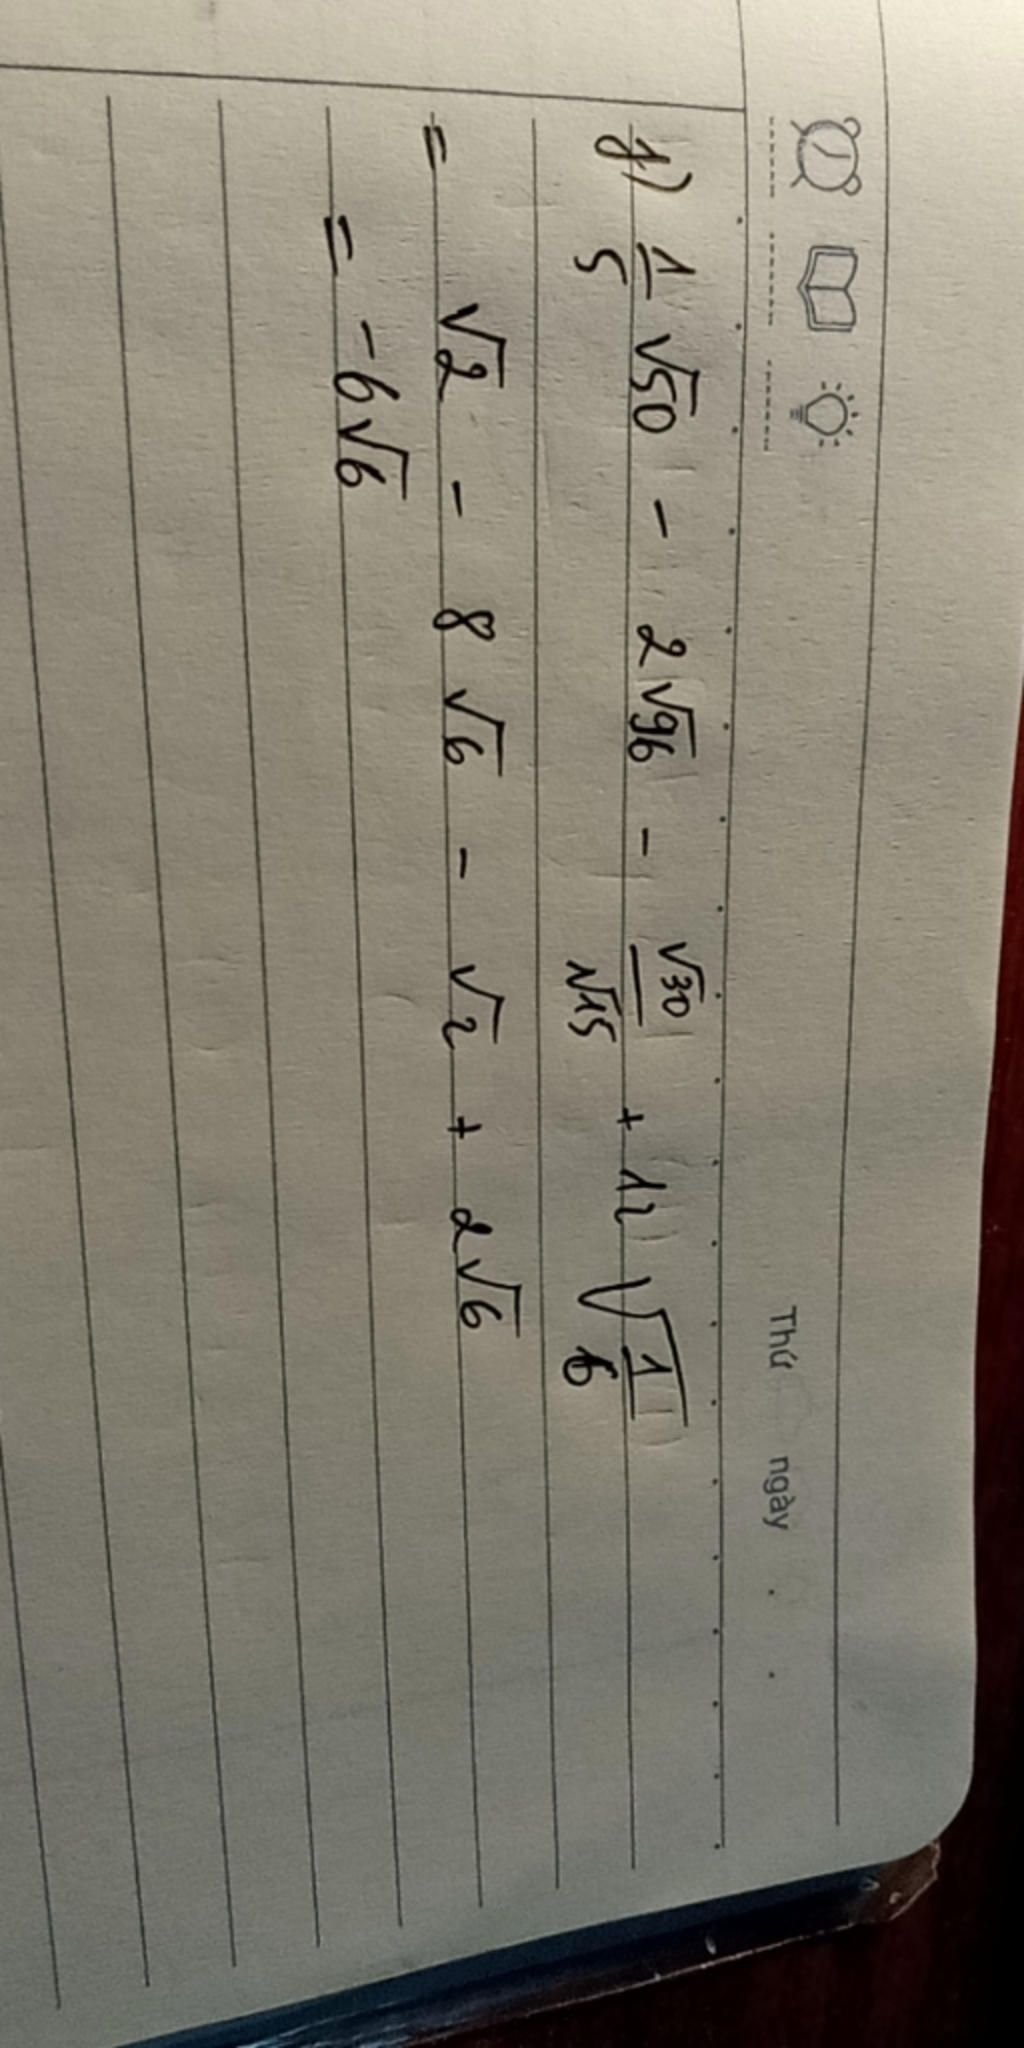 Thứ ngày
g) 1/5 √50 - 2√96 - √30/√15 + 12 √(1/6)
= √2 - 8 √6 - √2 + 2√6
= -6√6